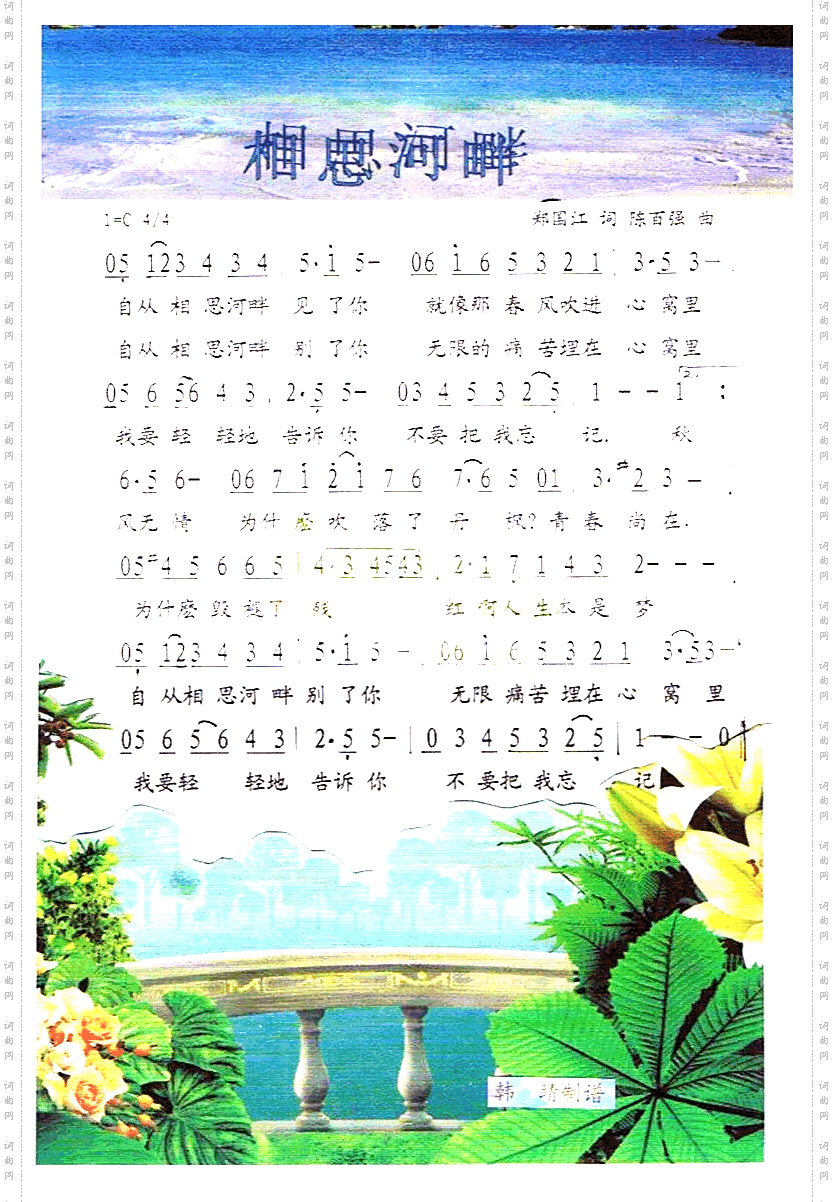 相思河畔
1=C 4/4 郑国江 词 陈百强 曲
05 123 4 3 4 5·i 5- 06 i 6 5 3 2 1 3·5 3-
自从 相 思河畔 见 了你 就像那 春 风吹进 心 窝里
自从 相 思河畔 别 了你 无限的 痛 苦埋在 心 窝里
05 6 56 4 3 2·5 5- 03 4 5 3 2 5 1 - - 1 :
我要 轻 轻地 告诉 你 不要 把 我忘 记. 秋
6·5 6- 06 7 i 2 i 7 6 7·6 5 01 3·#2 3 -
风无 情 为什 麽 吹 落 了 丹 枫? 青 春 尚 在.
05 #4 5 6 6 5 | 4·3 4543 2·1 7 1 4 3 2- - -
为什麽 毁 褪了 残 红 啊人 生本 是 梦
05 123 4 3 4 5·i 5 - 06 i 6 5 3 2 1 3·53-
自 从相 思河 畔 别 了你 无限 痛苦 埋在 心 窝 里
05 6 5 6 4 3 | 2·5 5- | 0 3 4 5 3 2 5 | 1 - - 0
我要轻 轻地 告诉 你 不 要把 我忘 记
韩 晴制谱
词曲网